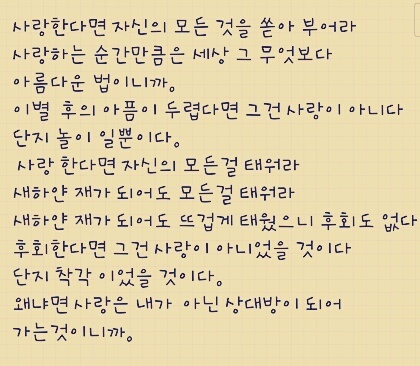 사랑한다면 자신의 모든 것을 쏟아 부어라
사랑하는 순간만큼은 세상 그 무엇보다
아름다운 법이니까。
이별 후의 아픔이 두렵다면 그건 사랑이 아니다
단지 놀이 일뿐이다。
사랑 한다면 자신의 모든걸 태워라
새하얀 재가 되어도 모든걸 태워라
새하얀 재가 되어도 뜨겁게 태웠으니 후회도 없다
후회한다면 그건 사랑이 아니었을 것이다
단지 착각 이었을 것이다。
왜냐면 사랑은 내가 아닌 상대방이 되어
가는것이니까。